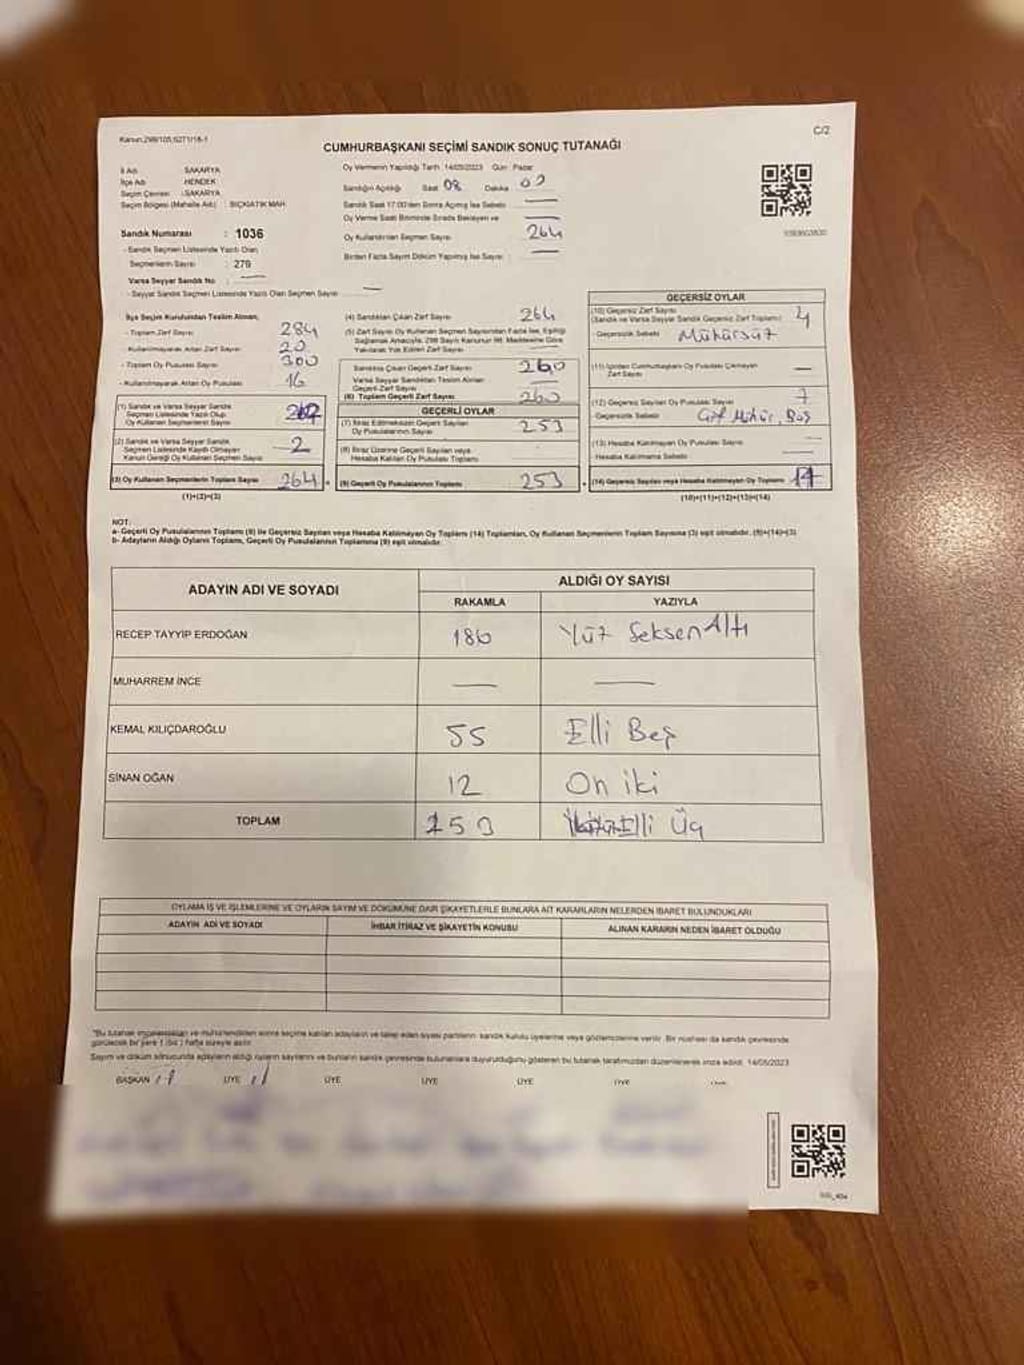 Kanun:298/105;6271/18-1
C/2
CUMHURBAŞKANI SEÇİMİ SANDIK SONUÇ TUTANAĞI
İl Adı SAKARYA
İlçe Adı HENDEK
Seçim Çevresi : SAKARYA
Seçim Bölgesi (Mahalle Adı) : BIÇKIATİK MAH
Sandık Numarası : 1036
- Sandık Seçmen Listesinde Yazılı Olan
Seçmenlerin Sayısı : 279
Varsa Seyyar Sandık No :
- Seyyar Sandık Seçmen Listesinde Yazılı Olan Seçmen Sayısı
Oy Vermenin Yapıldığı Tarih 14/05/2023 Gün Pazar
Sandığın Açıldığı Saat 08 Dakika
Sandık Saat 17.00'den Sonra Açılmış İse Sebebi
Oy Verme Saati Bitiminde Sırada Bekleyen ve
Oy Kullandırılan Seçmen Sayısı 264
Birden Fazla Sayım Döküm Yapılmış İse Sayısı :
İlçe Seçim Kurulundan Teslim Alınan;
- Toplam Zarf Sayısı 284
- Kullanılmayarak Artan Zarf Sayısı 20
- Toplam Oy Pusulası Sayısı 300
- Kullanılmayarak Artan Oy Pusulası 16
(1) Sandık ve Varsa Seyyar Sandık
Seçmen Listesinde Yazılı Olup
Oy Kullanan Seçmenlerin Sayısı 262
(2) Sandık ve Varsa Seyyar Sandık
Seçmen Listesinde Kayıtlı Olmayan
Kanun Gereği Oy Kullanan Seçmen Sayısı 2
(3) Oy Kullanan Seçmenlerin Toplam Sayısı 264
(1)+(2)=(3)
(4) Sandıktan Çıkan Zarf Sayısı 264
(5) Zarf Sayısı Oy Kullanan Seçmen Sayısından Fazla İse, Eşitliği
Sağlamak Amacıyla, 298 Sayılı Kanunun 98. Maddesine Göre
Yakılarak Yok Edilen Zarf Sayısı
Sandıkta Çıkan Geçerli Zarf Sayısı 260
Varsa Seyyar Sandıktan Teslim Alınan
Geçerli Zarf Sayısı
(6) Toplam Geçerli Zarf Sayısı 260
GEÇERLİ OYLAR
(7) İtiraz Edilmeksizin Geçerli Sayılan
Oy Pusulalarının Sayısı 253
(8) İtiraz Üzerine Geçerli Sayılan veya
Hesaba Katılan Oy Pusulası Toplamı
(9) Geçerli Oy Pusulalarının Toplamı 253
GEÇERSİZ OYLAR
(10) Geçersiz Zarf Sayısı
(Sandık ve Varsa Seyyar Sandık Geçersiz Zarf Toplamı) 4
- Geçersizlik Sebebi Mühürsüz
(11) İçinden Cumhurbaşkanı Oy Pusulası Çıkmayan
Zarf Sayısı
(12) Geçersiz Sayılan Oy Pusulası Sayısı 7
- Geçersizlik Sebebi Çift Mühür, Boş
(13) Hesaba Katılmayan Oy Pusulası Sayısı
Hesaba Katılmama Sebebi
(14) Geçersiz Sayılan veya Hesaba Katılmayan Oy Toplamı 11
(10)+(11)+(12)+(13)=(14)
NOT:
a- Geçerli Oy Pusulalarının Toplamı (9) ile Geçersiz Sayılan veya Hesaba Katılmayan Oy Toplamı (14) Toplamları, Oy Kullanan Seçmenlerin Toplam Sayısına (3) eşit olmalıdır. (9)+(14)=(3)
b- Adayların Aldığı Oyların Toplamı, Geçerli Oy Pusulalarının Toplamına (9) eşit olmalıdır.
ADAYIN ADI VE SOYADI
ALDIĞI OY SAYISI
RAKAMLA YAZIYLA
RECEP TAYYİP ERDOĞAN 186 Yüz Seksen Altı
MUHARREM İNCE
KEMAL KILIÇDAROĞLU 55 Elli Beş
SİNAN OĞAN 12 On iki
TOPLAM 253 Elli Üç
OYLAMA İŞ VE İŞLEMLERİNE VE OYLARIN SAYIM VE DÖKÜMÜNE DAİR ŞİKAYETLERLE BUNLARA AİT KARARLARIN NELERDEN İBARET BULUNDUKLARI
ADAYIN ADI VE SOYADI İHBAR İTİRAZ VE ŞİKAYETİN KONUSU ALINAN KARARIN NEDEN İBARET OLDUĞU
*Bu tutanak imzalandıktan ve mühürlendikten sonra seçime katılan adayların ve talep eden siyasi partilerin sandık kurulu üyelerine veya gözlemcilerine verilir. Bir nüshası da sandık çevresinde
görülecek bir yere 1 (bir) hafta süreyle asılır.
Sayım ve döküm sonucunda adayların aldığı oyların sayılarını ve bunların sandık çevresinde bulunanlara duyurulduğunu gösteren bu tutanak tarafımızdan düzenlenerek imza edildi. 14/05/2023
BAŞKAN ÜYE ÜYE ÜYE ÜYE ÜYE